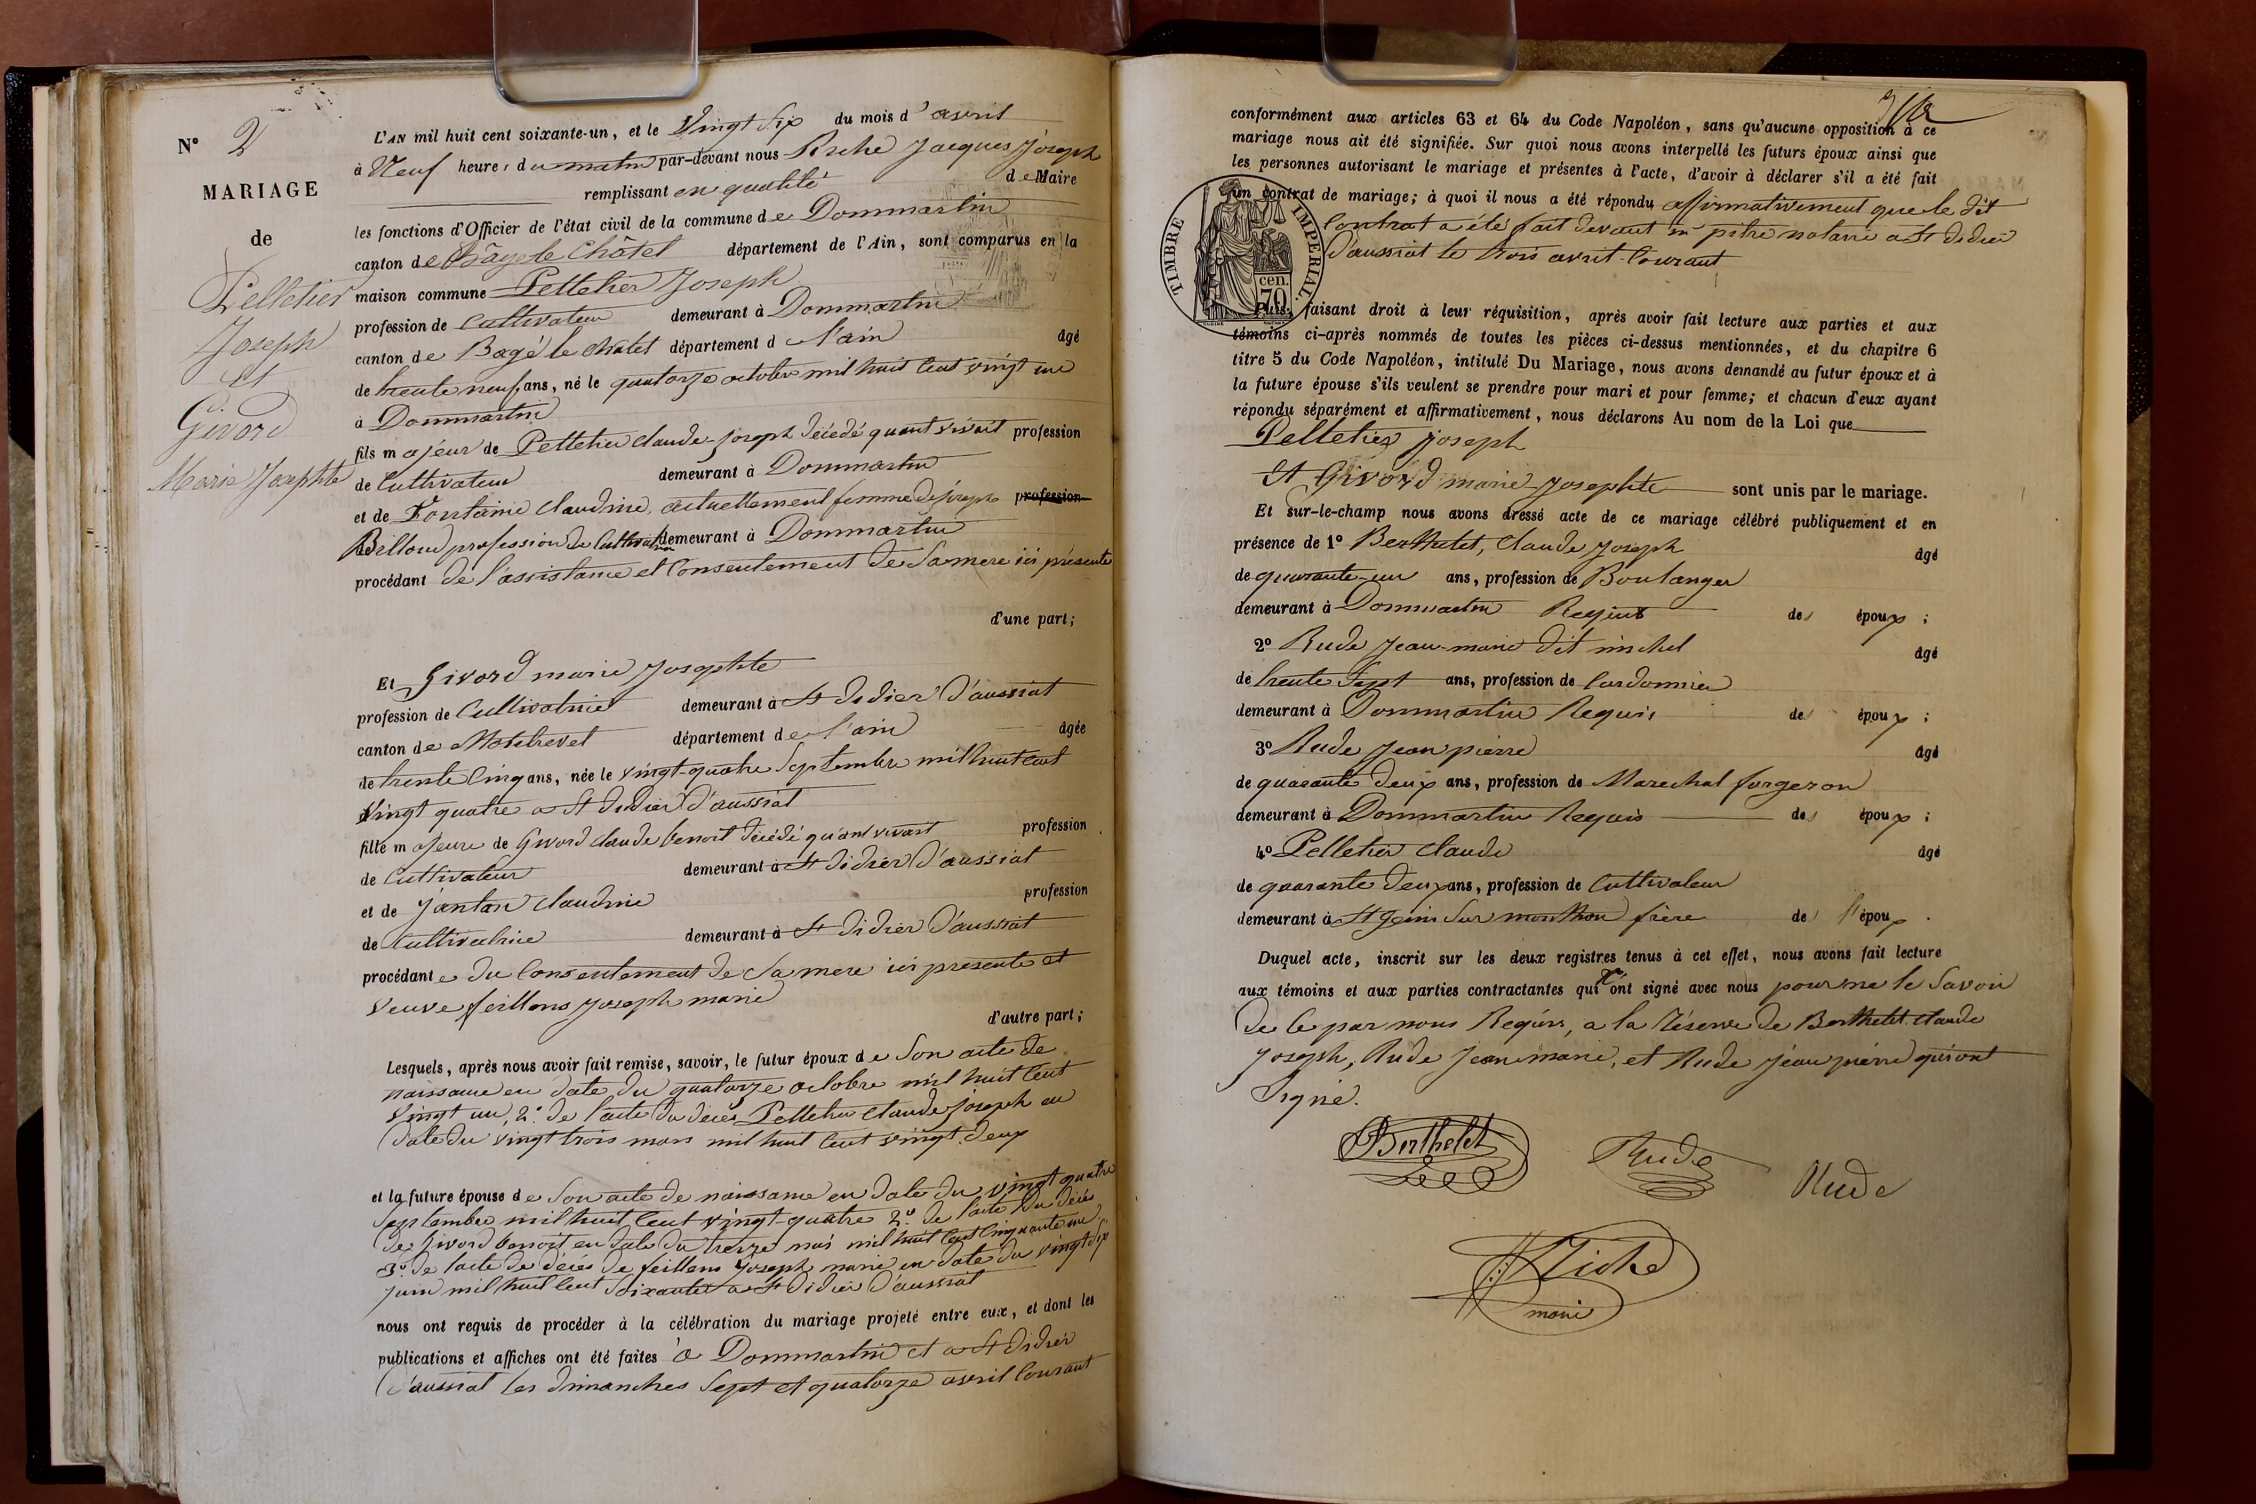 N° 2
MARIAGE
de
Pelletier
Joseph
et
Givord
Marie Josephte
L'AN mil huit cent soixante-un, et le Vingt Six du mois d'avril
à Neuf heures du matin par-devant nous Jacques Joseph
remplissant en qualité de Maire
les fonctions d'Officier de l'état civil de la commune de Dommartin
canton de Bâgé le Châtel département de l'Ain, sont comparus en la
maison commune Pelletier Joseph
profession de Cultivateur demeurant à Dommartin
canton de Bagé le chatel département d l'ain âgé
de trente neuf ans, né le quatorze octobre mil huit cent vingt un
à Dommartin
fils majeur de Pelletier Claude-Joseph décédé quant vivait profession
de Cultivateur demeurant à Dommartin
et de Fontaine Claudine, actuellement femme de joseph profession
Billoud profession de Cultivateur demeurant à Dommartin
procédant de l'assistance et Consentement de Sa mere ici présente
d'une part;
Et Givord marie Josephte
profession de Cultivatrice demeurant à St Didier d'aussiat
canton de Montrevel département de l'ain âgée
de trente Cinq ans, née le vingt-quatre Septembre mil huit cent
Vingt quatre a St Didier d'aussiat
fille majeure de Givord Claude benoit décédé quant vivait profession
de Cultivateur demeurant à St Didier d'aussiat
et de Jantan Claudine profession
de Cultivatrice demeurant à St Didier d'aussiat
procédante du Consentement de Sa mere ici présente et
Veuve feillens Joseph marie
d'autre part;
Lesquels, après nous avoir fait remise, savoir, le futur époux de Son acte de
naissance en date du quatorze octobre mil huit Cent
Vingt un, 2° de l'acte du décès Pelletier Claude Joseph en
date du vingt trois mars mil huit Cent vingt deux
et la future épouse de Son acte de naissance en date du vingt quatre
Septembre mil huit Cent vingt-quatre 2° de l'acte du décès
de Givord benoit en date du treize mai mil huit Cent Cinquante un
3° de l'acte de décès de feillens Joseph marie en date du vingt Six
juin mil huit Cent Soixante a St Didier d'aussiat
nous ont requis de procéder à la célébration du mariage projeté entre eux, et dont les
publications et affiches ont été faites à Dommartin et a St Didier
d'aussiat les dimanches Sept et quatorze avril Courant
conformément aux articles 63 et 64 du Code Napoléon, sans qu'aucune opposition à ce
mariage nous ait été signifiée. Sur quoi nous avons interpellé les futurs époux ainsi que
les personnes autorisant le mariage et présentes à l'acte, d'avoir à déclarer s'il a été fait
un contrat de mariage; à quoi il nous a été répondu affirmativement que le dit
Contrat a été fait devant me pitre notaire a St Didier
d'aussiat le trois avril Courant
TIMBRE IMPERIAL.
70 cen.
Puis, faisant droit à leur réquisition, après avoir fait lecture aux parties et aux
témoins ci-après nommés de toutes les pièces ci-dessus mentionnées, et du chapitre 6
titre 5 du Code Napoléon, intitulé Du Mariage, nous avons demandé au futur époux et à
la future épouse s'ils veulent se prendre pour mari et pour femme; et chacun d'eux ayant
répondu séparément et affirmativement, nous déclarons Au nom de la Loi que
Pelletier Joseph
Et Givord marie Josephte sont unis par le mariage.
Et sur-le-champ nous avons dressé acte de ce mariage célébré publiquement et en
présence de 1° Berthelet, Claude Joseph âgé
de quarante-un ans, profession de Boulanger
demeurant à Dommartin Requis des époux;
2° Rude Jean-marie dit michel âgé
de trente Sept ans, profession de Cordonnier
demeurant à Dommartin Requis des époux;
3° Rude Jean pierre âgé
de quarante deux ans, profession de Marechal forgeron
demeurant à Dommartin Requis des époux;
4° Pelletier Claude âgé
de quarante deux ans, profession de Cultivateur
demeurant à St Genis Sur monthon frère de l'époux.
Duquel acte, inscrit sur les deux registres tenus à cet effet, nous avons fait lecture
aux témoins et aux parties contractantes qui n'ont signé avec nous pour ne le Savoir
de Ce par nous Requis, a la réserve de Berthelet Claude
Joseph, Rude Jean marie, et Rude Jean pierre qui ont
Signé.
Berthelet
Rude
Rude
maire